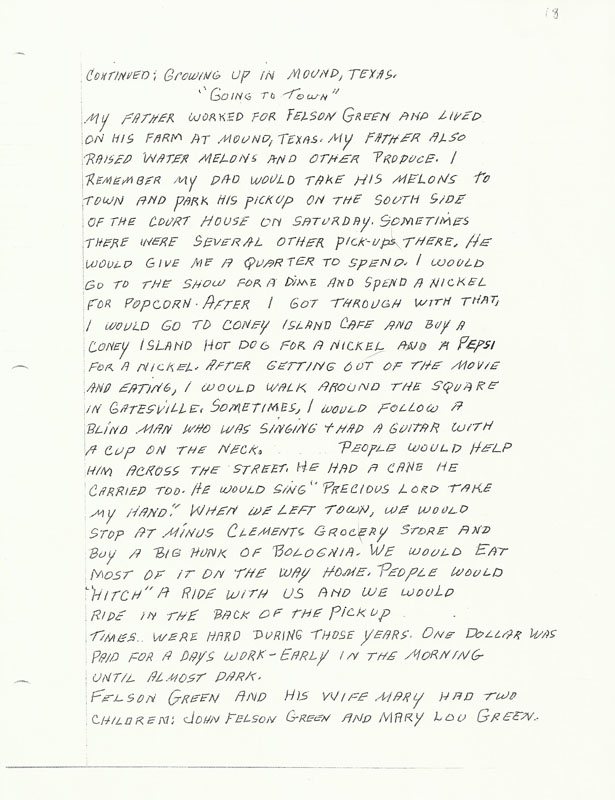 18
CONTINUED: GROWING UP IN MOUND, TEXAS.
"GOING TO TOWN"
MY FATHER WORKED FOR FELSON GREEN AND LIVED
ON HIS FARM AT MOUND, TEXAS. MY FATHER ALSO
RAISED WATER MELONS AND OTHER PRODUCE. I
REMEMBER MY DAD WOULD TAKE HIS MELONS to
TOWN AND PARK HIS PICKUP ON THE SOUTH SIDE
OF THE COURT HOUSE ON SATURDAY. SOMETIMES
THERE WERE SEVERAL OTHER PICK-UPS THERE. HE
WOULD GIVE ME A QUARTER TO SPEND. I WOULD
GO TO THE SHOW FOR A DIME AND SPEND A NICKEL
FOR POPCORN. AFTER I GOT THROUGH WITH THAT,
I WOULD GO TO CONEY ISLAND CAFE AND BUY A
CONEY ISLAND HOT DOG FOR A NICKEL AND A PEPSI
FOR A NICKEL. AFTER GETTING OUT OF THE MOVIE
AND EATING, I WOULD WALK AROUND THE SQUARE
IN GATESVILLE. SOMETIMES, I WOULD FOLLOW A
BLIND MAN WHO WAS SINGING + HAD A GUITAR WITH
A CUP ON THE NECK. PEOPLE WOULD HELP
HIM ACROSS THE STREET. HE HAD A CANE HE
CARRIED TOO. HE WOULD SING "PRECIOUS LORD TAKE
MY HAND." WHEN WE LEFT TOWN, WE WOULD
STOP AT MINUS CLEMENTS GROCERY STORE AND
BUY A BIG HUNK OF BOLOGNIA. WE WOULD EAT
MOST OF IT ON THE WAY HOME. PEOPLE WOULD
"HITCH" A RIDE WITH US AND WE WOULD
RIDE IN THE BACK OF THE PICKUP
TIMES.. WERE HARD DURING THOSE YEARS. ONE DOLLAR WAS
PAID FOR A DAYS WORK - EARLY IN THE MORNING
UNTIL ALMOST DARK.
FELSON GREEN AND HIS WIFE MARY HAD TWO
CHILDREN: JOHN FELSON GREEN AND MARY LOU GREEN.